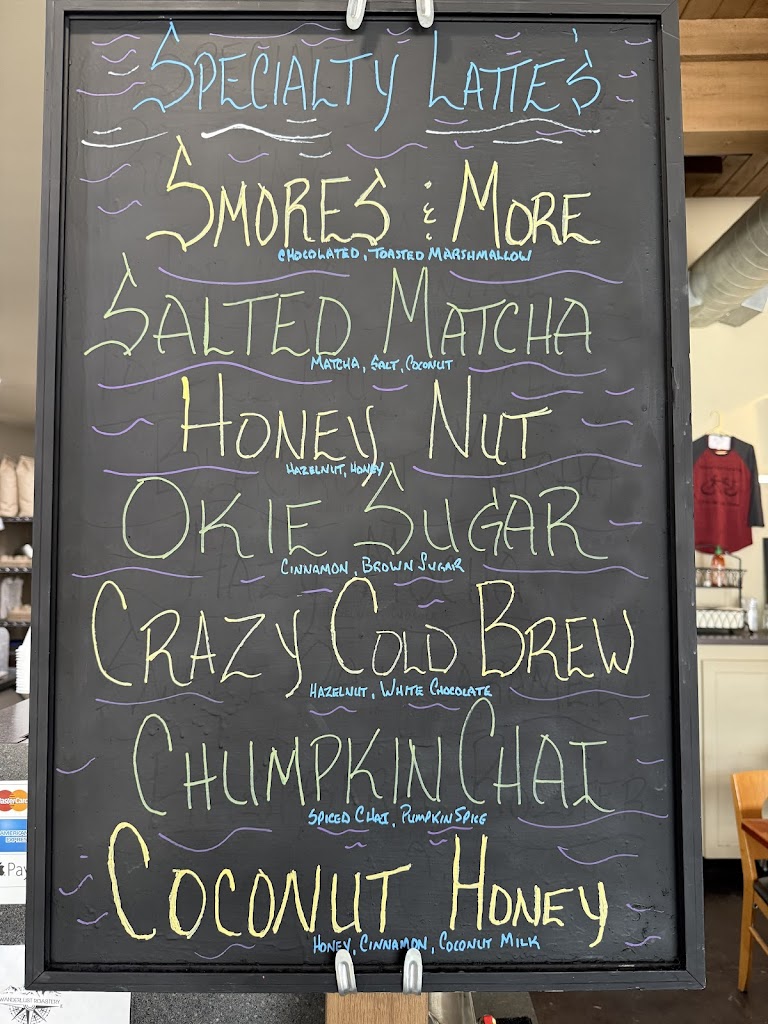 SPECIALTY LATTE'S
SMORES & MORE
CHOCOLATED, TOASTED MARSHMALLOW
SALTED MATCHA
MATCHA, SALT, COCONUT
HONEY NUT
HAZELNUT, HONEY
OKIE SUGAR
CINNAMON, BROWN SUGAR
CRAZY COLD BREW
HAZELNUT, WHITE CHOCOLATE
CHUMPKIN CHAI
SPICED CHAI, PUMPKIN SPICE
COCONUT HONEY
HONEY, CINNAMON, COCONUT MILK
MasterCard
AMERICAN EXPRESS
Pay
WANDERLUST ROASTERY